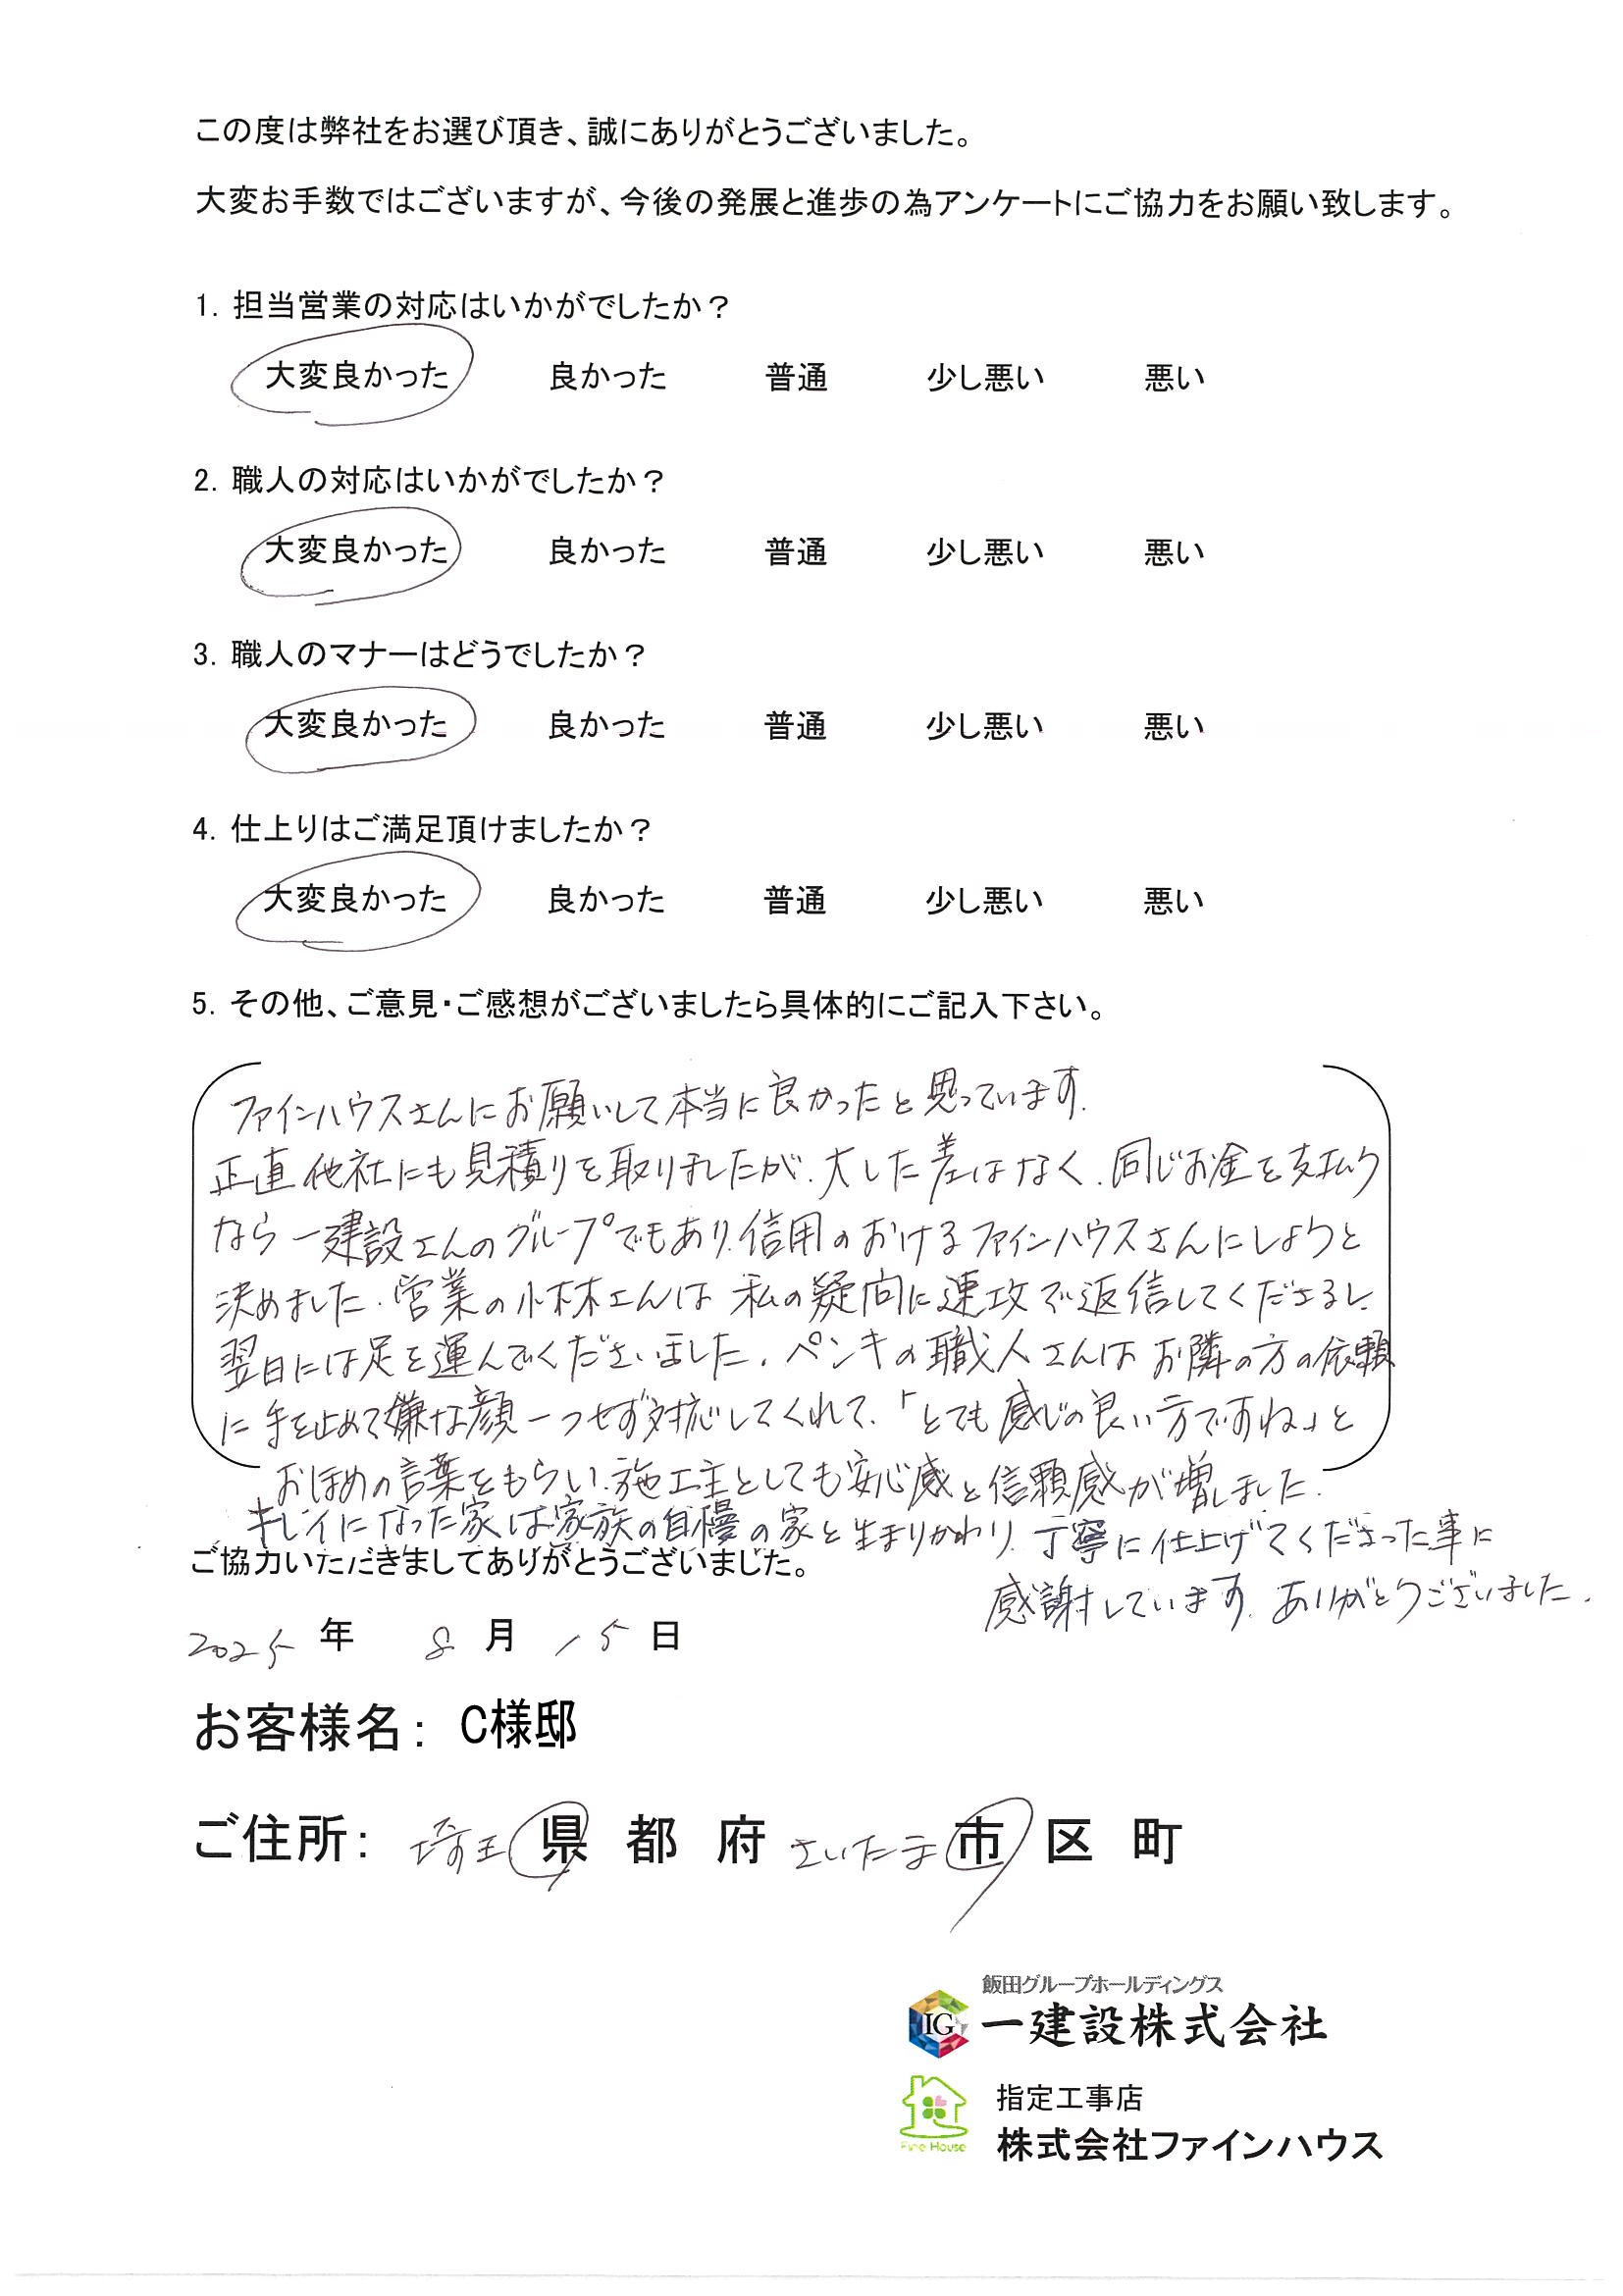 この度は弊社をお選び頂き、誠にありがとうございました。
大変お手数ではございますが、今後の発展と進歩の為アンケートにご協力をお願い致します。
1. 担当営業の対応はいかがでしたか？
大変良かった 良かった 普通 少し悪い 悪い
2. 職人の対応はいかがでしたか？
大変良かった 良かった 普通 少し悪い 悪い
3. 職人のマナーはどうでしたか？
大変良かった 良かった 普通 少し悪い 悪い
4. 仕上りはご満足頂けましたか？
大変良かった 良かった 普通 少し悪い 悪い
5. その他、ご意見・ご感想がございましたら具体的にご記入下さい。
ファインハウスさんにお願いして本当に良かったと思っています。
正直他社にも見積りを取りましたが、大した差はなく、同じお金を支払う
なら一建設さんのグループでもあり、信用のおけるファインハウスさんにしようと
決めました。営業の小林さんは私の疑問に速攻で返信してくださるし、
翌日には足を運んでくださいました。ペンキの職人さんはお隣の方の依頼
に手を止めて嫌な顔一つせず対応してくれて、「とても感じの良い方ですね」と
おほめの言葉をもらい、施工主としても安心感と信頼感が増しました。
キレイになった家は家族の自慢の家と生まりかわり、丁寧に仕上げてくださった事に
感謝しています。ありがとうございました。
ご協力いただきましてありがとうございました。
2025 年 8 月 15 日
お客様名： C様邸
ご住所： 埼玉 県 都 府 さいたま 市 区 町
飯田グループホールディングス
IG 一建設株式会社
指定工事店
Fine House 株式会社ファインハウス